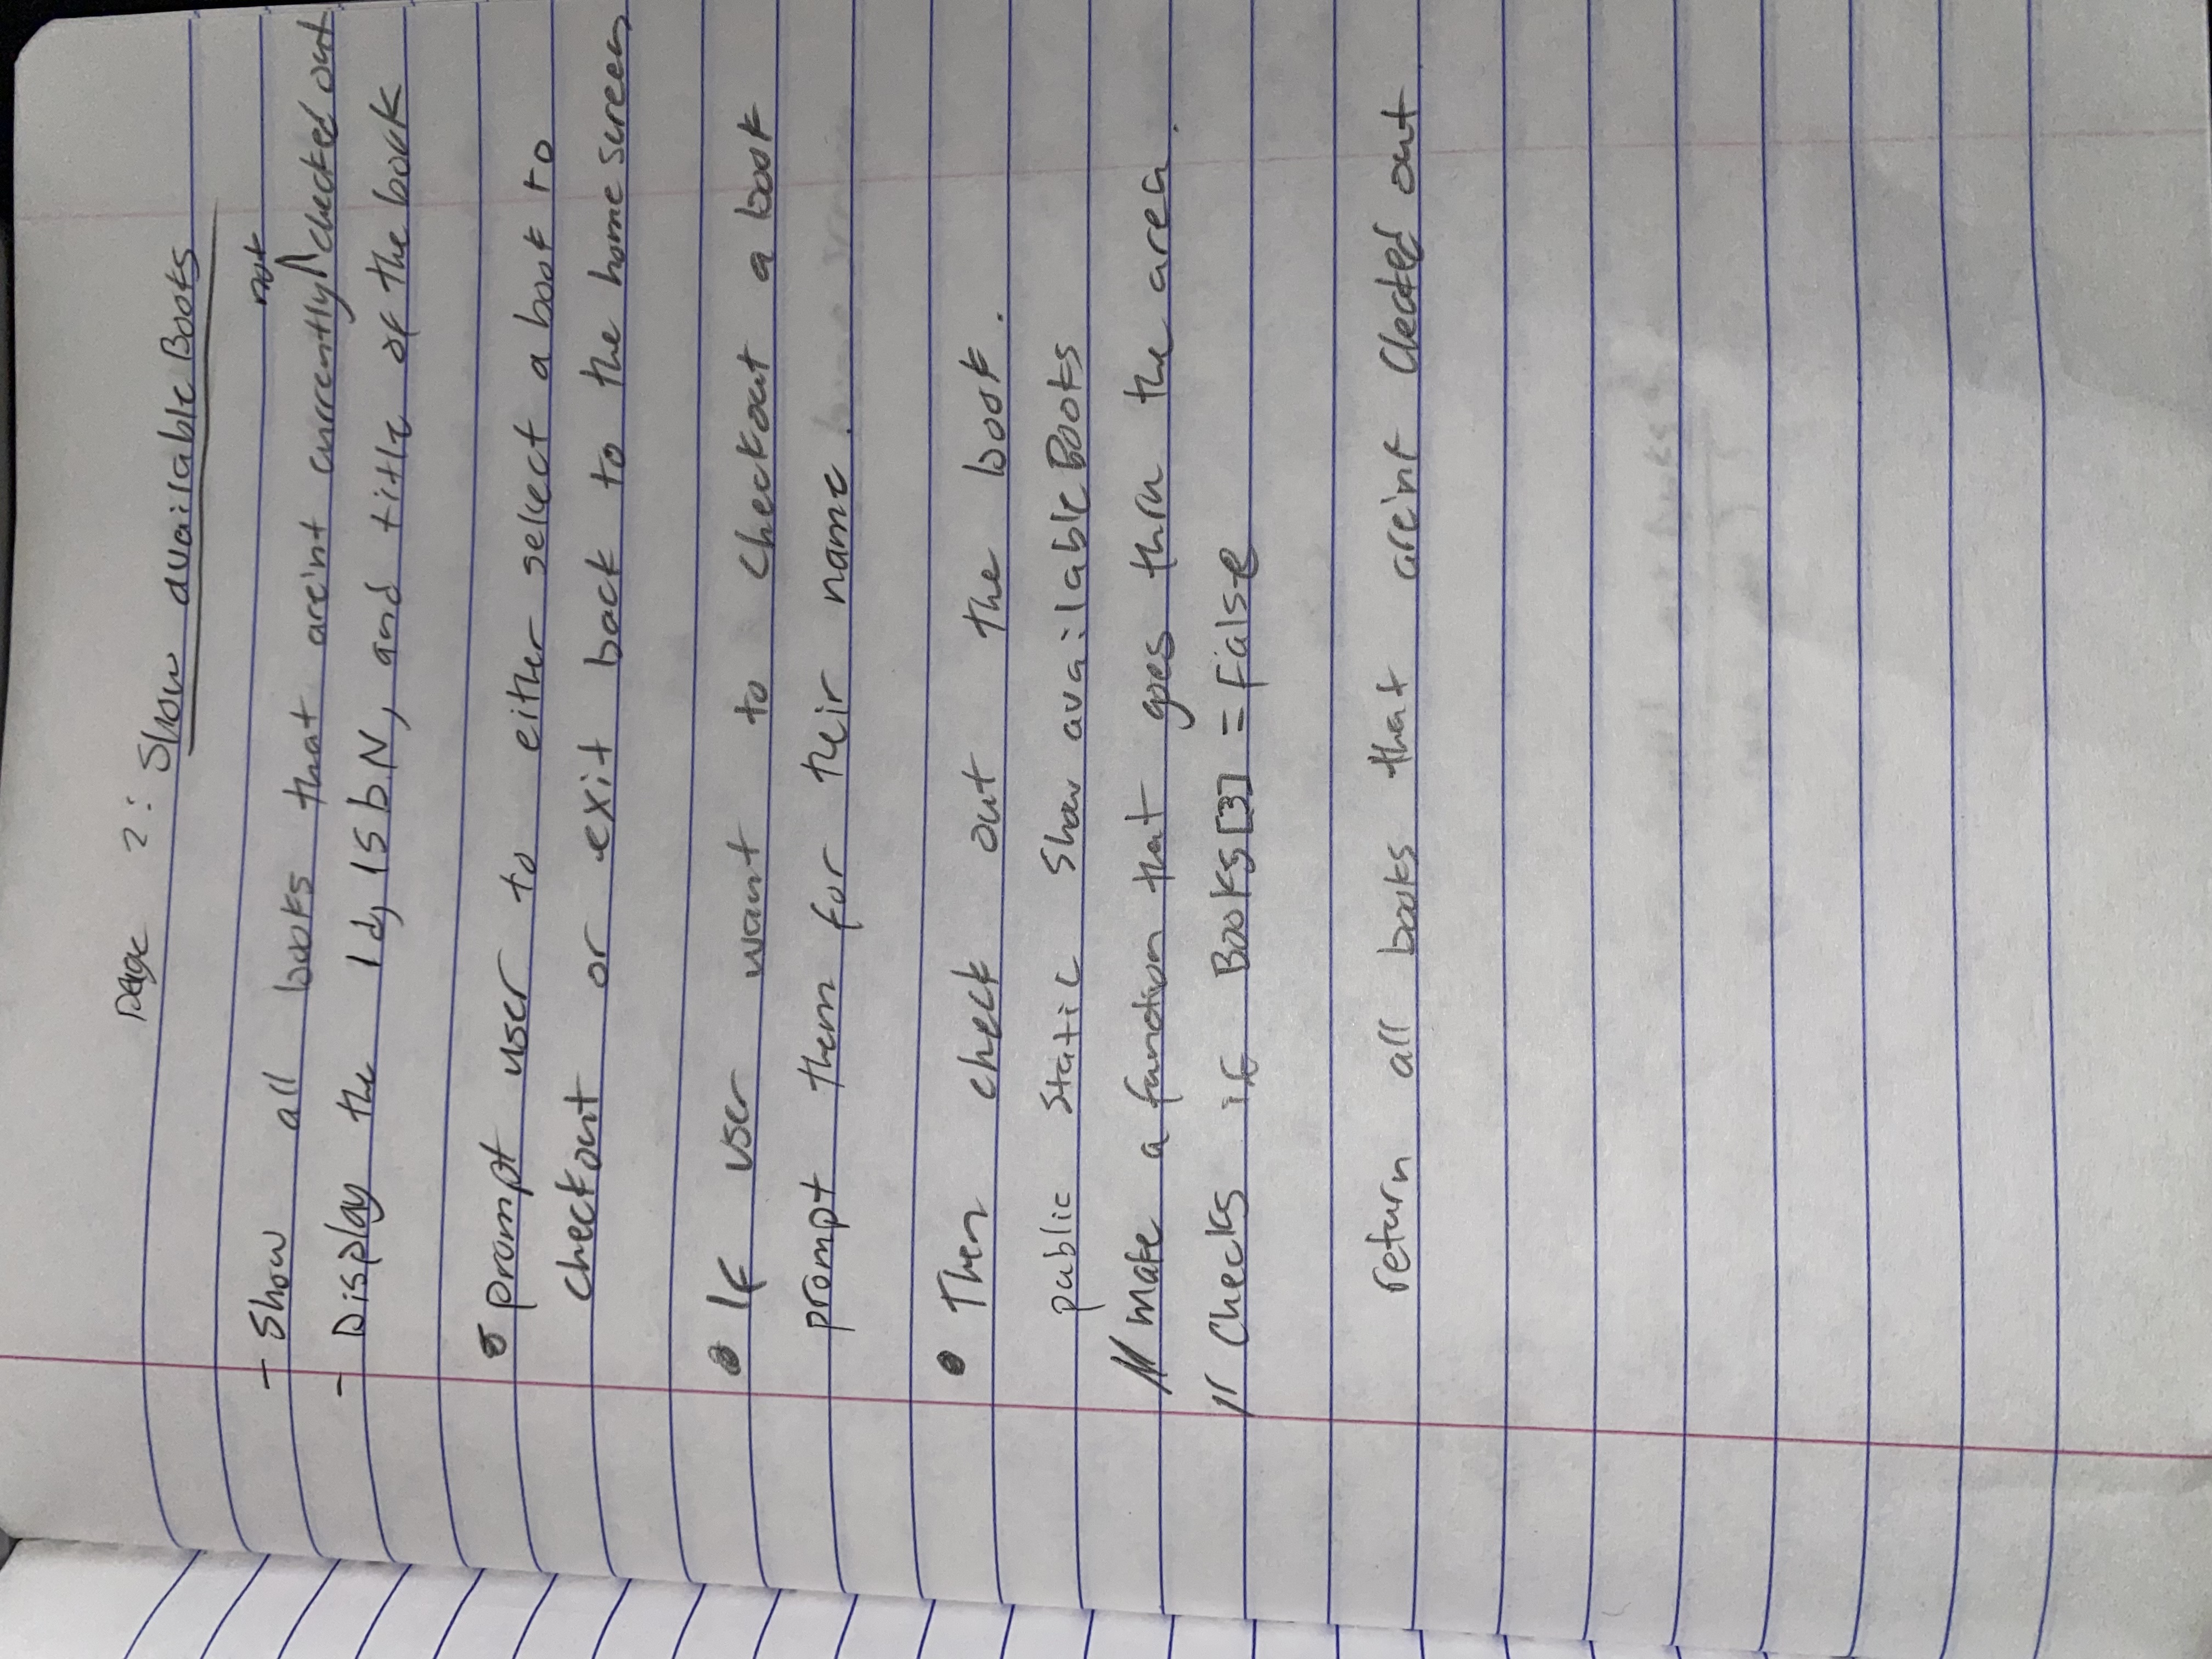 page 2: Show available Books
- Show all books that are'nt currently not checked out
- Display the Id, ISbN, and title of the book
• prompt user to either select a book to
checkout or exit back to the home screen
• If user want to checkout a book
prompt them for their name.
• Then check out the book.
public static Show available Books
// make a function that goes thru the area.
// Checks if Books[3] = False
return all books that are'nt Checked out